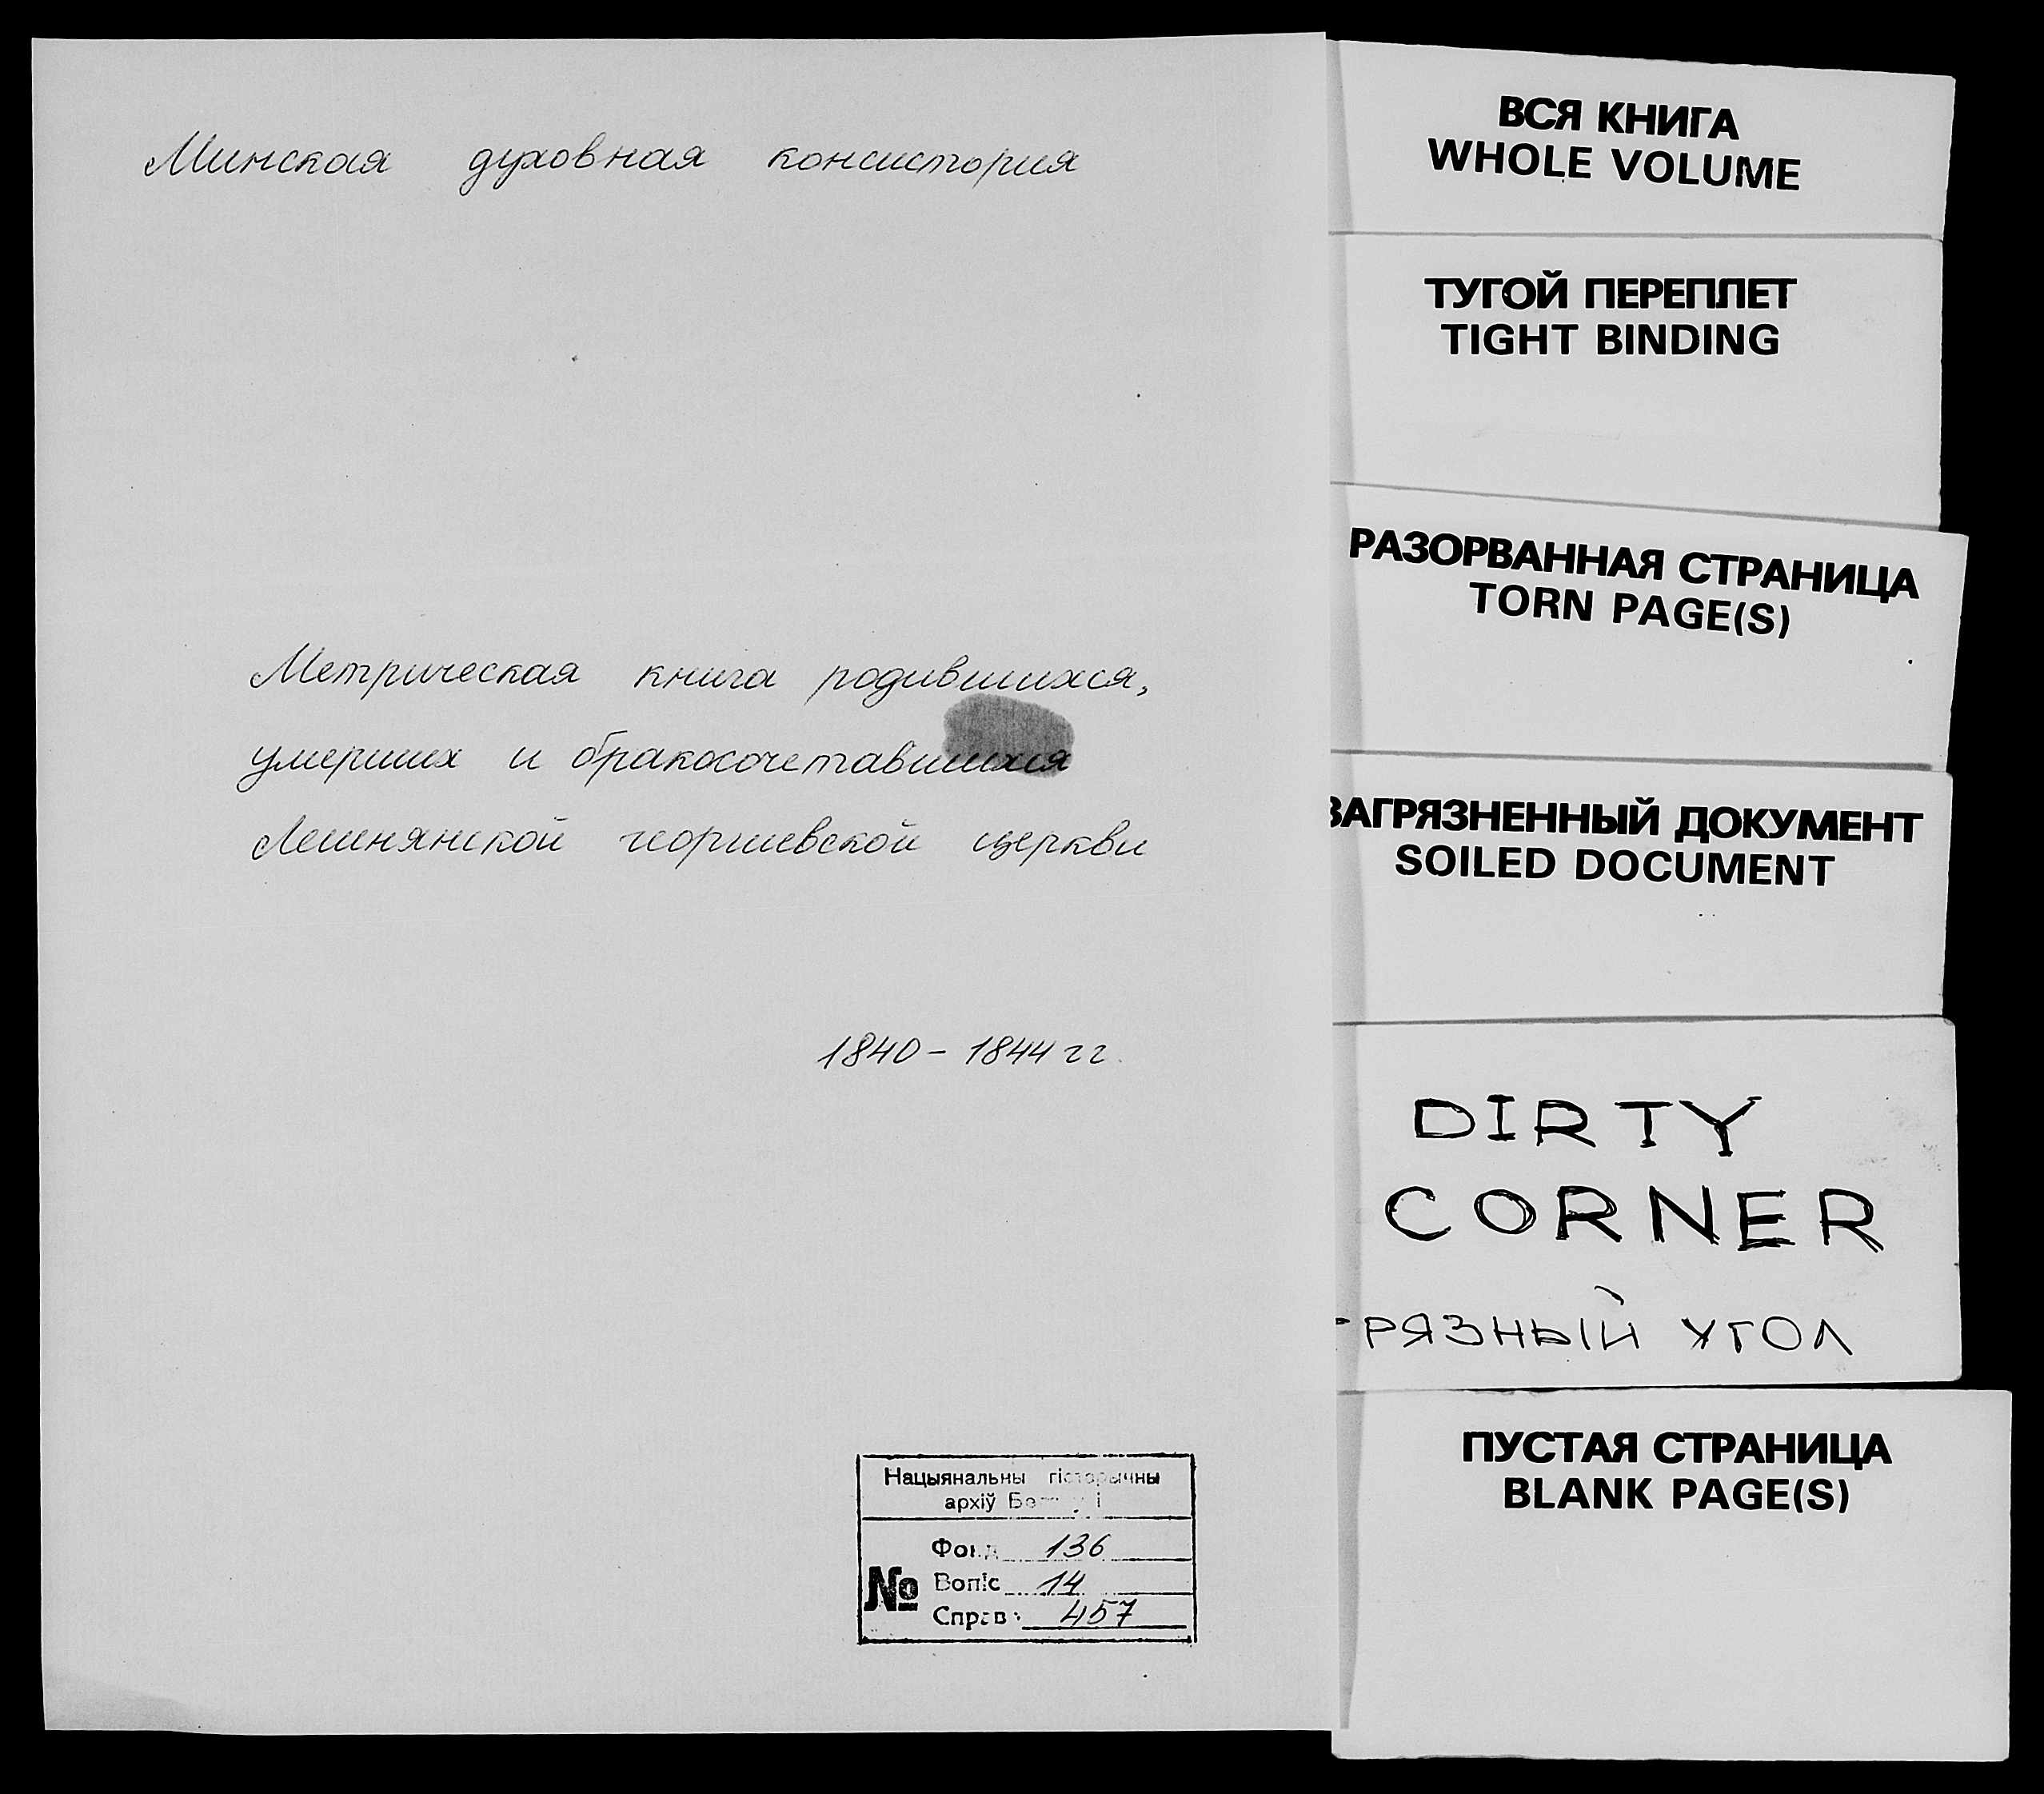 Минская духовная консистория
Метрическая книга родившихся,
умерших и бракосочетавшихся
Лешнянской георгиевской церкви
1840 - 1844 гг.
Нацыянальны гістарычны
архіў Беларусі
Фонд 136
№ Вопіс 14
Справа 457
ВСЯ КНИГА
WHOLE VOLUME
ТУГОЙ ПЕРЕПЛЕТ
TIGHT BINDING
РАЗОРВАННАЯ СТРАНИЦА
TORN PAGE(S)
ЗАГРЯЗНЕННЫЙ ДОКУМЕНТ
SOILED DOCUMENT
DIRTY
CORNER
ГРЯЗНЫЙ УГОЛ
ПУСТАЯ СТРАНИЦА
BLANK PAGE(S)